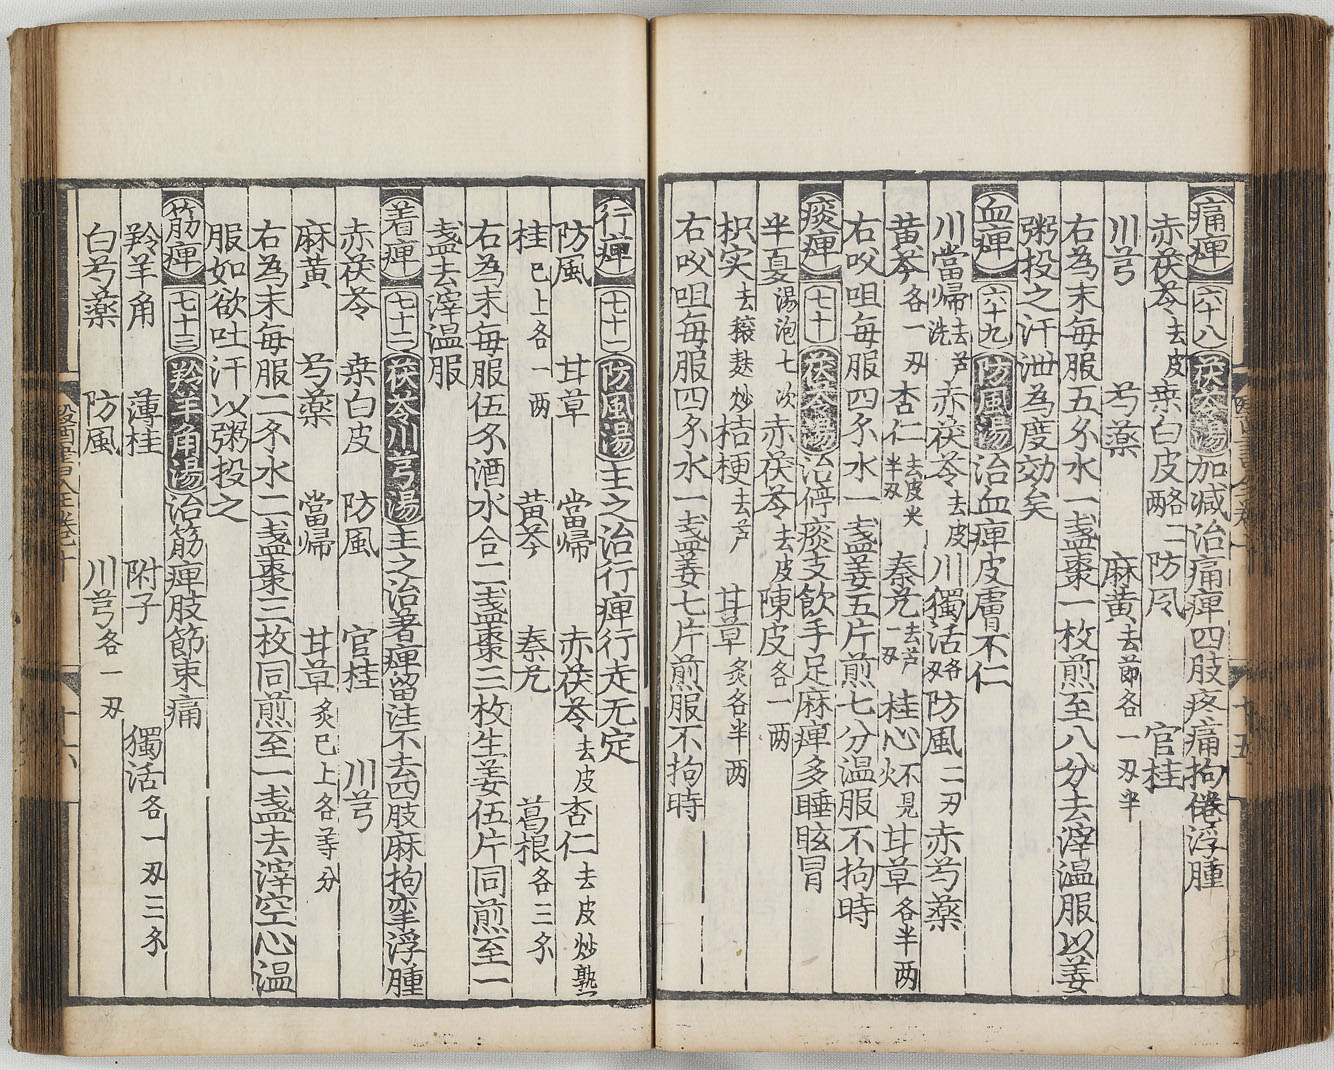 痛痹 六十八 茯苓湯 加减治痛痹四肢疼痛拘倦浮腫
赤茯苓去皮 桒白皮各二两 防风 官桂
川芎 芍藥 麻黄去節各一刄半
右為末每服五分水一盞棗一枚煎至八分去滓温服以姜
粥投之汗泄為度効矣
血痹 六十九 防風湯 治血痹皮膚不仁
川當歸去芦洗 赤茯苓去皮 川獨活各刄 防風二刄 赤芍藥
黄芩各一刄 杏仁去皮尖半刄 秦艽去芦一刄 桂心不見火 甘草各半两
右㕮咀每服四分水一盞姜五片煎七分温服不拘時
痰痹 七十 茯苓湯 治停痰支飲手足麻痹多睡眩冒
半夏湯泡七次 赤茯苓去皮 陳皮各一两
枳实去穰麩炒 桔梗去芦 甘草炙各半两
右㕮咀每服四分水一盞姜七片煎服不拘時
行痹 七十一 防風湯 主之治行痹行走无定
防風 甘草 當歸 赤茯苓去皮 杏仁去皮炒熟
桂已上各一两 黄芩 秦艽 葛根各三分
右為末每服伍分酒水合二盞棗三枚生姜伍片同煎至一
盞去滓温服
着痹 七十二 茯苓川芎湯 主之治著痹留注不去四肢麻拘攣浮腫
赤茯苓 桒白皮 防風 官桂 川芎
麻黄 芍藥 當歸 甘草炙已上各等分
右為末每服二分水二盞棗三枚同煎至一盞去滓空心温
服如欲吐汗以粥投之
筋痹 七十三 羚羊角湯 治筋痹肢節束痛
羚羊角 薄桂 附子 獨活各一刄三分
白芍藥 防風 川芎各一刄
十六